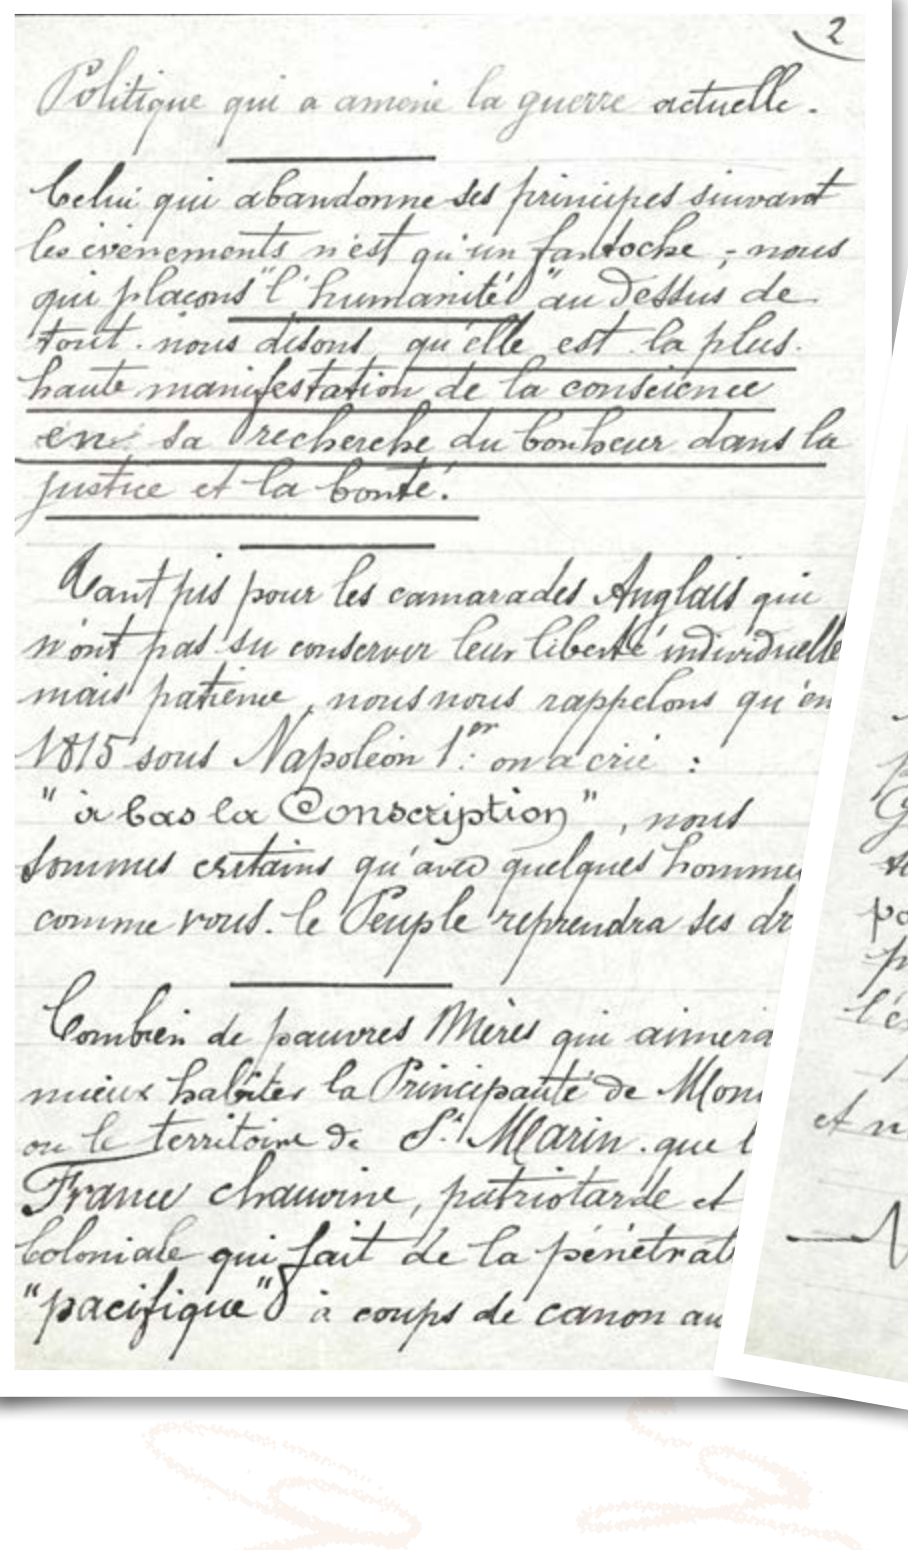 2
Politique qui a amené la guerre actuelle.
Celui qui abandonne ses principes suivant
les évènements n'est qu'un fantoche ; nous
qui plaçons "l'humanité" au dessus de
tout. nous disons qu'elle est la plus
haute manifestation de la conscience
en sa recherche du bonheur dans la
justice et la bonté.
Tant pis pour les camarades Anglais qui
n'ont pas su conserver leur liberté individuelle
mais patience, nous nous rappelons qu'en
1815 sous Napoléon 1er on a crié :
"à bas la Conscription", nous
sommes certains qu'avec quelques homme
comme vous. le Peuple reprendra ses dr
Combien de pauvres Mères qui aimera
mieux habiter la Principauté de Mon
ou le territoire de St Marin. que l
France chauvine, patriotarde et
Coloniale qui fait de la pénétrat
"pacifique" à coups de canon au
et n